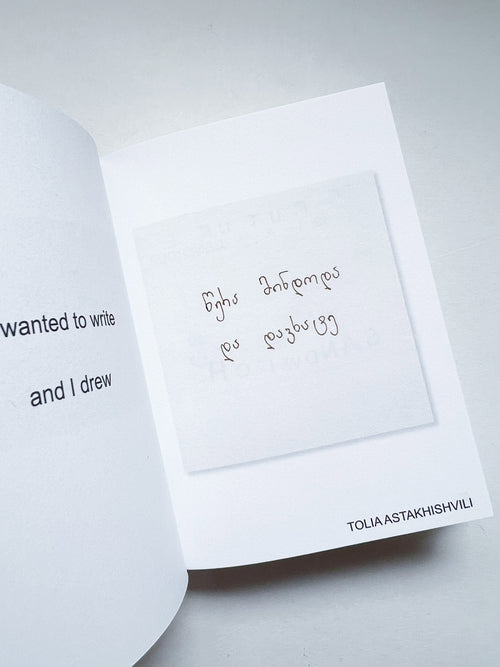 wanted to write
and I drew
წერა მინდოდა
და დავხატე
TOLIA ASTAKHISHVILI